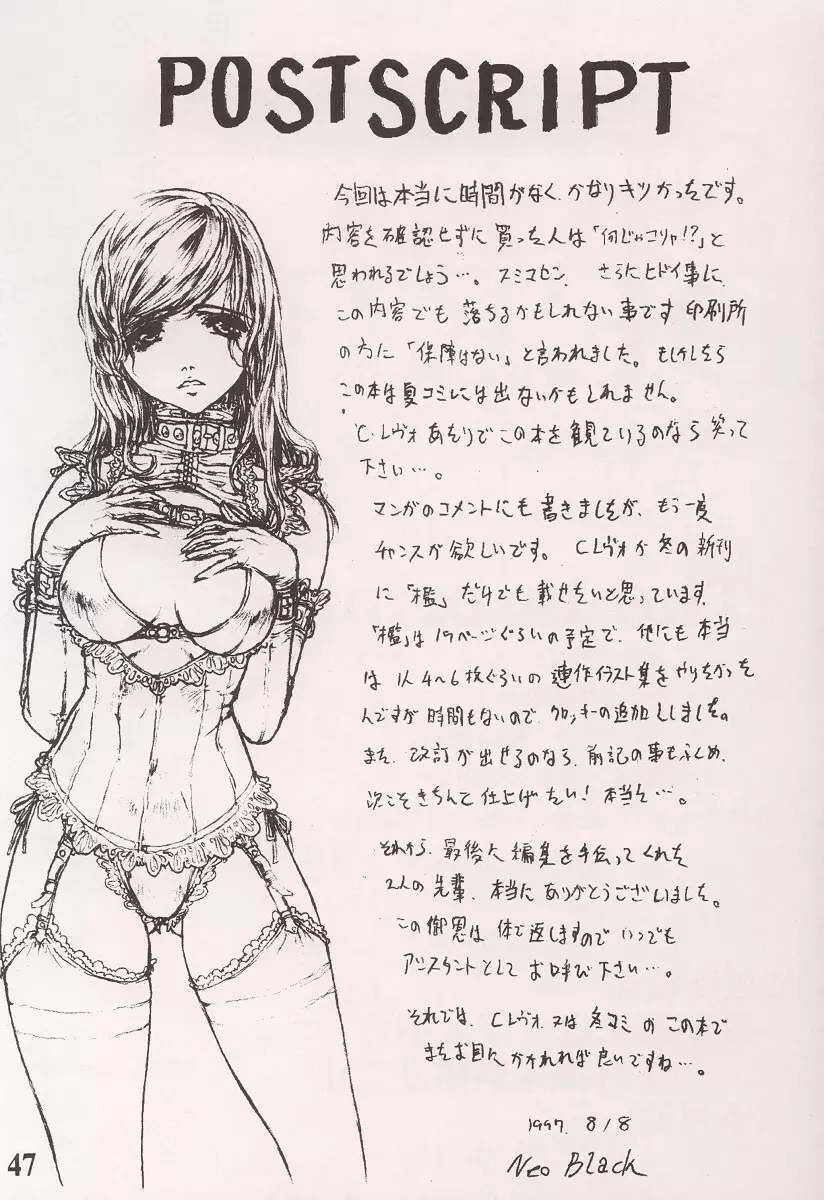 POSTSCRIPT
今回は本当に時間がなく、かなりキツかったです。
内容を確認せずに買った人は「何じゃコリャ!?」と
思われるでしょう…。スミマセン、さらにヒドイ事に、
この内容でも落ちるかもしれない事です 印刷所
の方に「保障はない」と言われました。もしかしたら
この本は夏コミには出ないかもしれません。
C.レヴォあたりでこの本を観ているのなら笑って
下さい…。
マンガのコメントにも書きましたが、もう一度
チャンスが欲しいです。CレヴォかSの新刊
に「檻」だけでも載せたいと思っています。
「檻」は19ページぐらいの予定で、他にも本当
は1人4〜6枚ぐらいの連作イラスト集をやりたかった
んですが時間もないので、クロッキーの追加にしました。
また、改訂が出せるのなら、前記の事もふくめ、
次こそきちんと仕上げたい!本当に…。
それから、最後に編集を手伝ってくれた
2人の先輩、本当にありがとうございました。
この御恩は体で返しますので いつでも
アシスタントとしてお呼び下さい…。
それでは、Cレヴォ、又は冬コミのこの本で
またお目にかかれれば良いですね…。
1997. 8/8
Neo Black
47